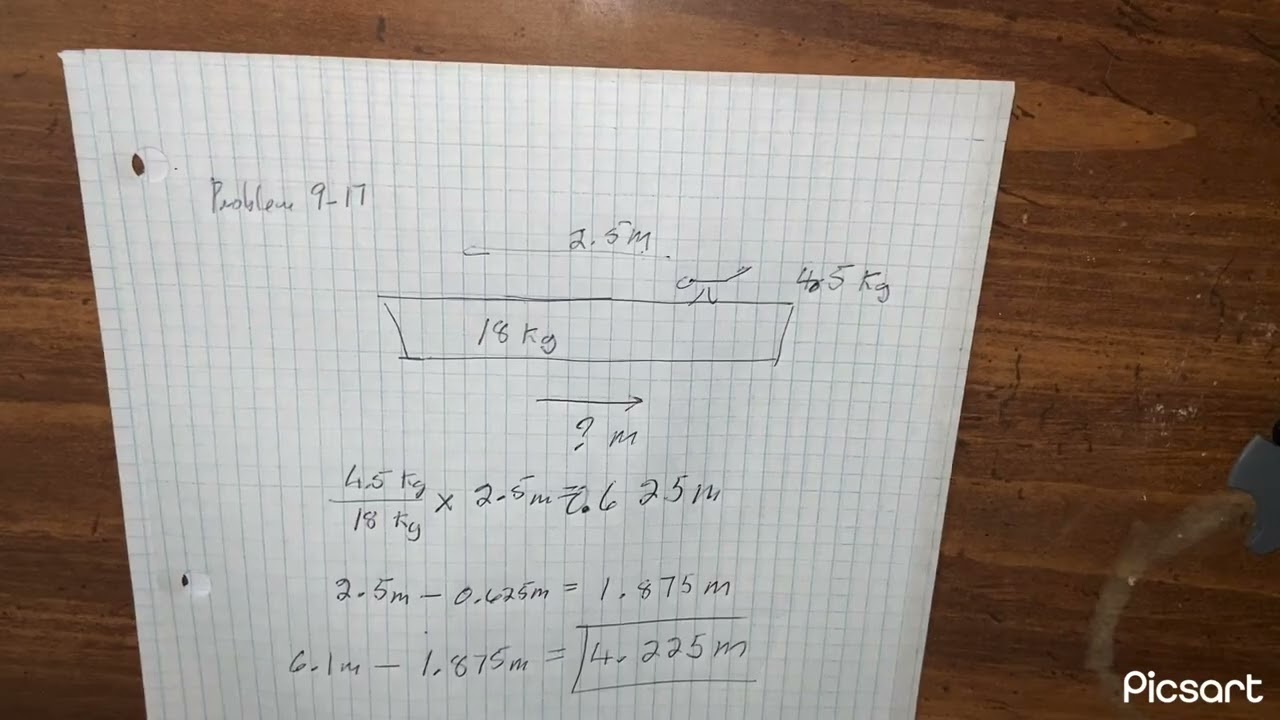 Problem 9-17
2.5m
4.5 Kg
18 Kg
? m
4.5 Kg
18 Kg
× 2.5m = 0.625m
2.5m - 0.625m = 1.875m
6.1m - 1.875m = 4.225m
Picsart